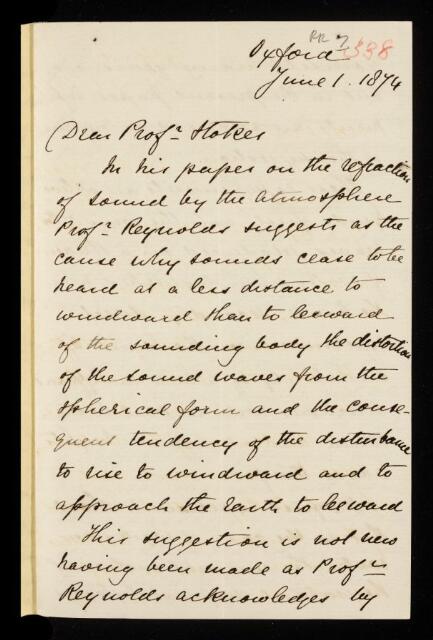 RR 7 338
Oxford
June 1. 1874
Dear Profr. Stokes
In his paper on the refraction
of sound by the atmosphere
Profr. Reynolds suggests as the
cause why sounds cease to be
heard at a less distance to
windward than to leeward
of the sounding body the distortion
of the sound waves from the
spherical form and the conse-
quent tendency of the disturbance
to rise to windward and to
approach the Earth to leeward
This suggestion is not new
having been made as Profr
Reynolds acknowledges by